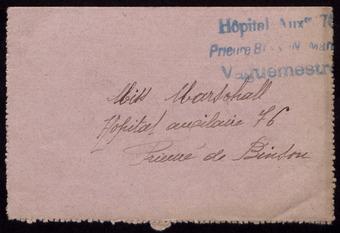 Hôpital Auxre 76
Prieuré B
Vaguemestre
Miss Marschall
Hôpital auxilaire 76
Prieuré de Binson